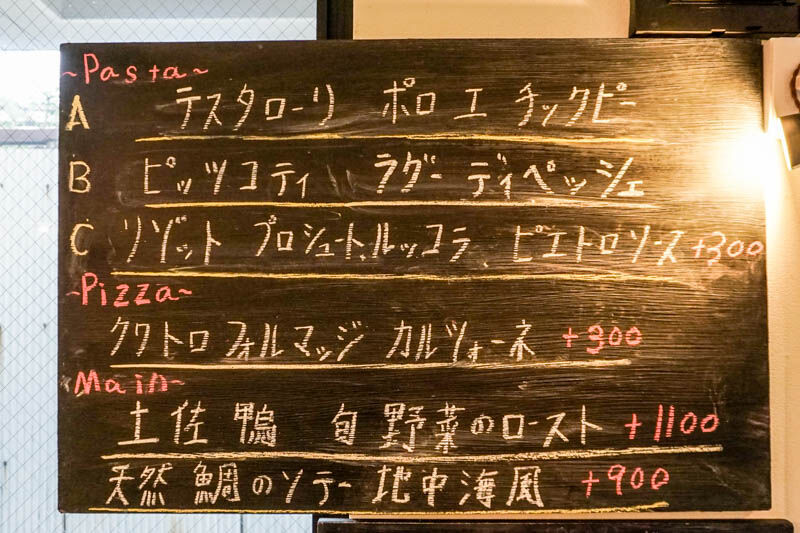 ~Pasta~
A テスタローリ ポロ エ チックピー
B ピッツコティ ラグー ディペッシェ
C リゾット プロシュート、ルッコラ、ピエトロソース +300
~Pizza~
クワトロフォルマッジ カルツォーネ +300
Main~
土佐鴨 旬野菜のロースト +1100
天然鯛のソテー 地中海風 +900